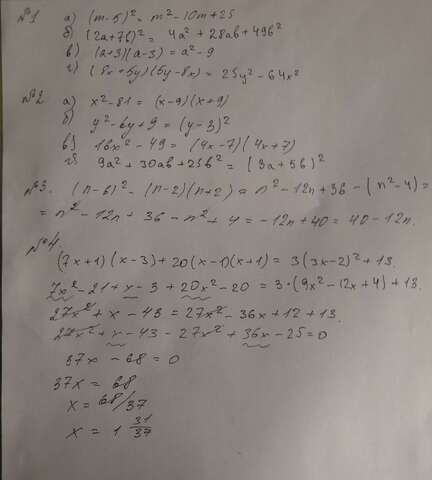 №1 а) (m-5)² = m² - 10m + 25
б) (2a+7b)² = 4a² + 28ab + 49b²
в) (a+3)(a-3) = a² - 9
г) (8x+5y)(5y-8x) = 25y² - 64x²
№2 а) x² - 81 = (x-9)(x+9)
б) y² - 6y + 9 = (y-3)²
в) 16x² - 49 = (4x-7)(4x+7)
г) 9a² + 30ab + 25b² = (3a+5b)²
№3. (n-6)² - (n-2)(n+2) = n² - 12n + 36 - (n² - 4) =
= n² - 12n + 36 - n² + 4 = -12n + 40 = 40 - 12n.
№4.
(7x+1)(x-3) + 20(x-1)(x+1) = 3(3x-2)² + 13.
7x² - 21 + x - 3 + 20x² - 20 = 3·(9x² - 12x + 4) + 13.
27x² + x - 43 = 27x² - 36x + 12 + 13.
27x² + x - 43 - 27x² + 36x - 25 = 0
37x - 68 = 0
37x = 68
x = 68/37
x = 1 31/37